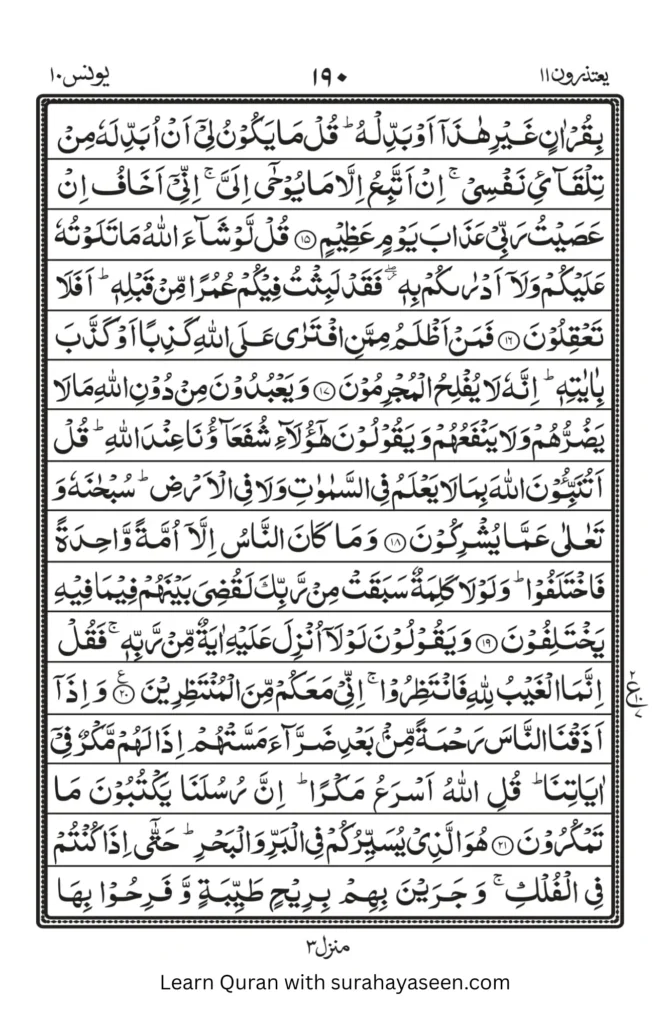 يعتذرون ۱۱ ۱۹۰ يونس ۱۰
بِقُرْاٰنٍ غَيْرِ هٰذَآ اَوْ بَدِّلْهُ ؕ قُلْ مَا يَكُوْنُ لِيْٓ اَنْ اُبَدِّلَهٗ مِنْ
تِلْقَآئِ نَفْسِيْ ۚ اِنْ اَتَّبِعُ اِلَّا مَا يُوْحٰٓى اِلَيَّ ۚ اِنِّيْٓ اَخَافُ اِنْ
عَصَيْتُ رَبِّيْ عَذَابَ يَوْمٍ عَظِيْمٍ ۝۱۵ قُلْ لَّوْ شَآءَ اللّٰهُ مَا تَلَوْتُهٗ
عَلَيْكُمْ وَلَآ اَدْرٰىكُمْ بِهٖ ۖؗ فَقَدْ لَبِثْتُ فِيْكُمْ عُمُرًا مِّنْ قَبْلِهٖ ؕ اَفَلَا
تَعْقِلُوْنَ ۝۱۶ فَمَنْ اَظْلَمُ مِمَّنِ افْتَرٰى عَلَى اللّٰهِ كَذِبًا اَوْ كَذَّبَ
بِاٰيٰتِهٖ ؕ اِنَّهٗ لَا يُفْلِحُ الْمُجْرِمُوْنَ ۝۱۷ وَيَعْبُدُوْنَ مِنْ دُوْنِ اللّٰهِ مَا لَا
يَضُرُّهُمْ وَلَا يَنْفَعُهُمْ وَيَقُوْلُوْنَ هٰٓؤُلَآءِ شُفَعَآؤُنَا عِنْدَ اللّٰهِ ؕ قُلْ
اَتُنَبِّـُٔوْنَ اللّٰهَ بِمَا لَا يَعْلَمُ فِي السَّمٰوٰتِ وَلَا فِي الْاَرْضِ ؕ سُبْحٰنَهٗ وَ
تَعٰلٰى عَمَّا يُشْرِكُوْنَ ۝۱۸ وَمَا كَانَ النَّاسُ اِلَّآ اُمَّةً وَّاحِدَةً
فَاخْتَلَفُوْا ؕ وَلَوْلَا كَلِمَةٌ سَبَقَتْ مِنْ رَّبِّكَ لَقُضِيَ بَيْنَهُمْ فِيْمَا فِيْهِ
يَخْتَلِفُوْنَ ۝۱۹ وَيَقُوْلُوْنَ لَوْلَآ اُنْزِلَ عَلَيْهِ اٰيَةٌ مِّنْ رَّبِّهٖ ۚ فَقُلْ
اِنَّمَا الْغَيْبُ لِلّٰهِ فَانْتَظِرُوْا ۚ اِنِّيْ مَعَكُمْ مِّنَ الْمُنْتَظِرِيْنَ ۝۲۰ ع وَاِذَآ
۲ ع ۱۰ ۷
اَذَقْنَا النَّاسَ رَحْمَةً مِّنْۢ بَعْدِ ضَرَّآءَ مَسَّتْهُمْ اِذَا لَهُمْ مَّكْرٌ فِيْٓ
اٰيَاتِنَا ؕ قُلِ اللّٰهُ اَسْرَعُ مَكْرًا ؕ اِنَّ رُسُلَنَا يَكْتُبُوْنَ مَا
تَمْكُرُوْنَ ۝۲۱ هُوَ الَّذِيْ يُسَيِّرُكُمْ فِي الْبَرِّ وَالْبَحْرِ ؕ حَتّٰٓى اِذَا كُنْتُمْ
فِي الْفُلْكِ ۚ وَجَرَيْنَ بِهِمْ بِرِيْحٍ طَيِّبَةٍ وَّفَرِحُوْا بِهَا
منزل ۳
Learn Quran with surahayaseen.com